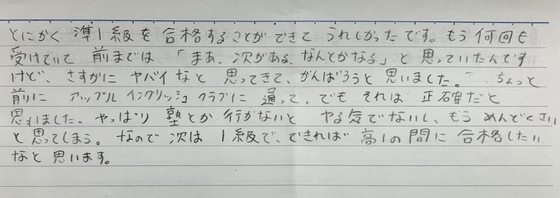 とにかく 準1級を合格することができて うれしかったです。もう何回も
受けていて 前までは 「まあ、次がある。なんとかなる」と思っていたんです
けど、さすがに ヤバイなと 思ってきて、がんばろうと思いました。 ちょっと
前に アップルイングリッシュクラブに 通って、でも それは 正確だと
思いました。やっぱり 塾とか行かないと やる気でないし、もう めんどくさい
と思ってしまう。なので次は 1級で、できれば 高1の間に 合格したい
なと思います。